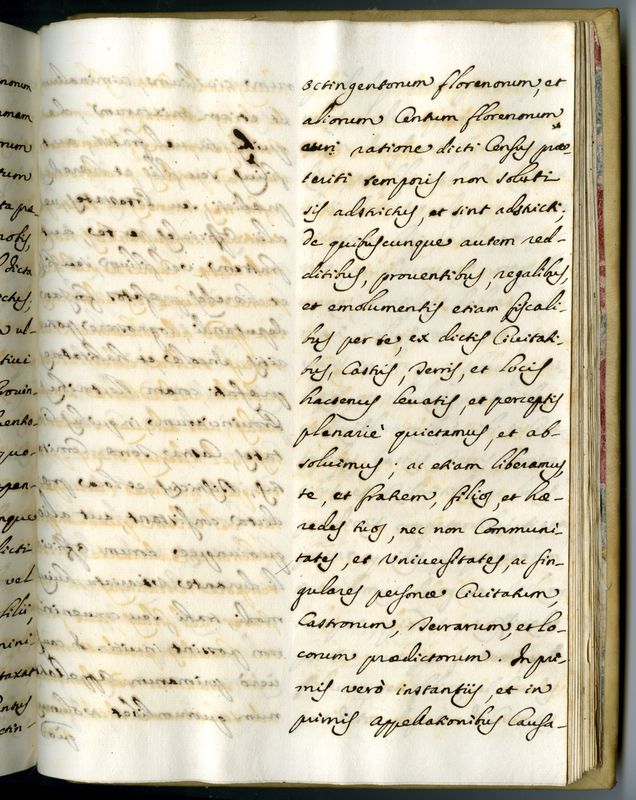 norum
mam
rum
tum
ta præ-
notis,
dicta
ctus,
ul-
tiui
Prouin-
uento-
quo-
pen-
nque
dicti
vel
filii,
mini-
taxat
ntus
ctin-
octingentorum florenorum, et
aliorum Centum florenorum
auri ratione dicti Census præ-
teriti temporis non soluti
sis adstrictus, et sint adstricti;
de quibuscunque autem red-
ditibus, prouentibus, regalibus,
et emolumentis etiam fiscali-
bus per te, ex dictis Ciuitati-
bus, Castris, Terris, et locis
hactenus leuatis, et perceptis
plenariè quietamus, et ab-
soluimus; ac etiam liberamus,
te, et fratrem, filios, et hæ-
redes tuos, nec non Communi-
tates, et Vniuersitates, ac sin-
gulares personæ Ciuitatum,
Castrorum, Terrarum, et lo-
corum prædictorum. In pri-
mis verò instantiis, et in
primis appellationibus Causa-